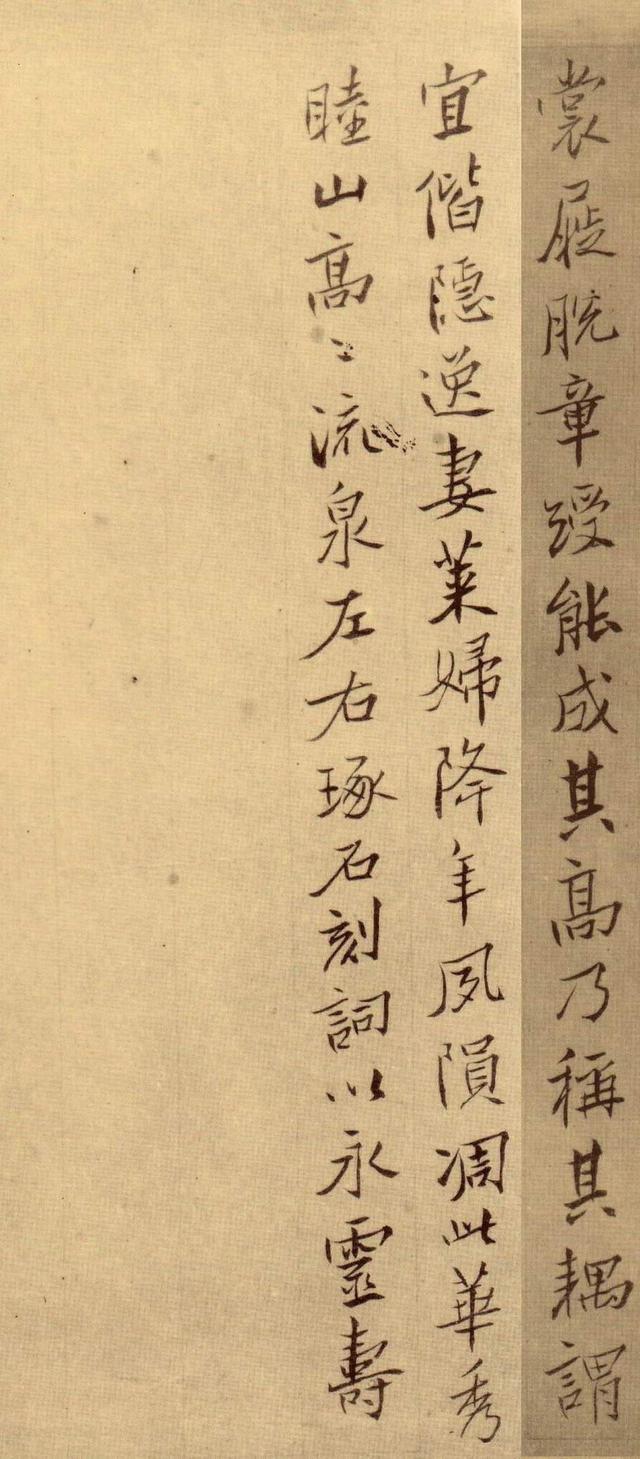 裳屣脫章綬能成其高乃稱其耦謂
宜偕隱逸妻萊婦降年夙隕凋此華秀
睦山高〻流泉左右琢石刻詞以永靈壽